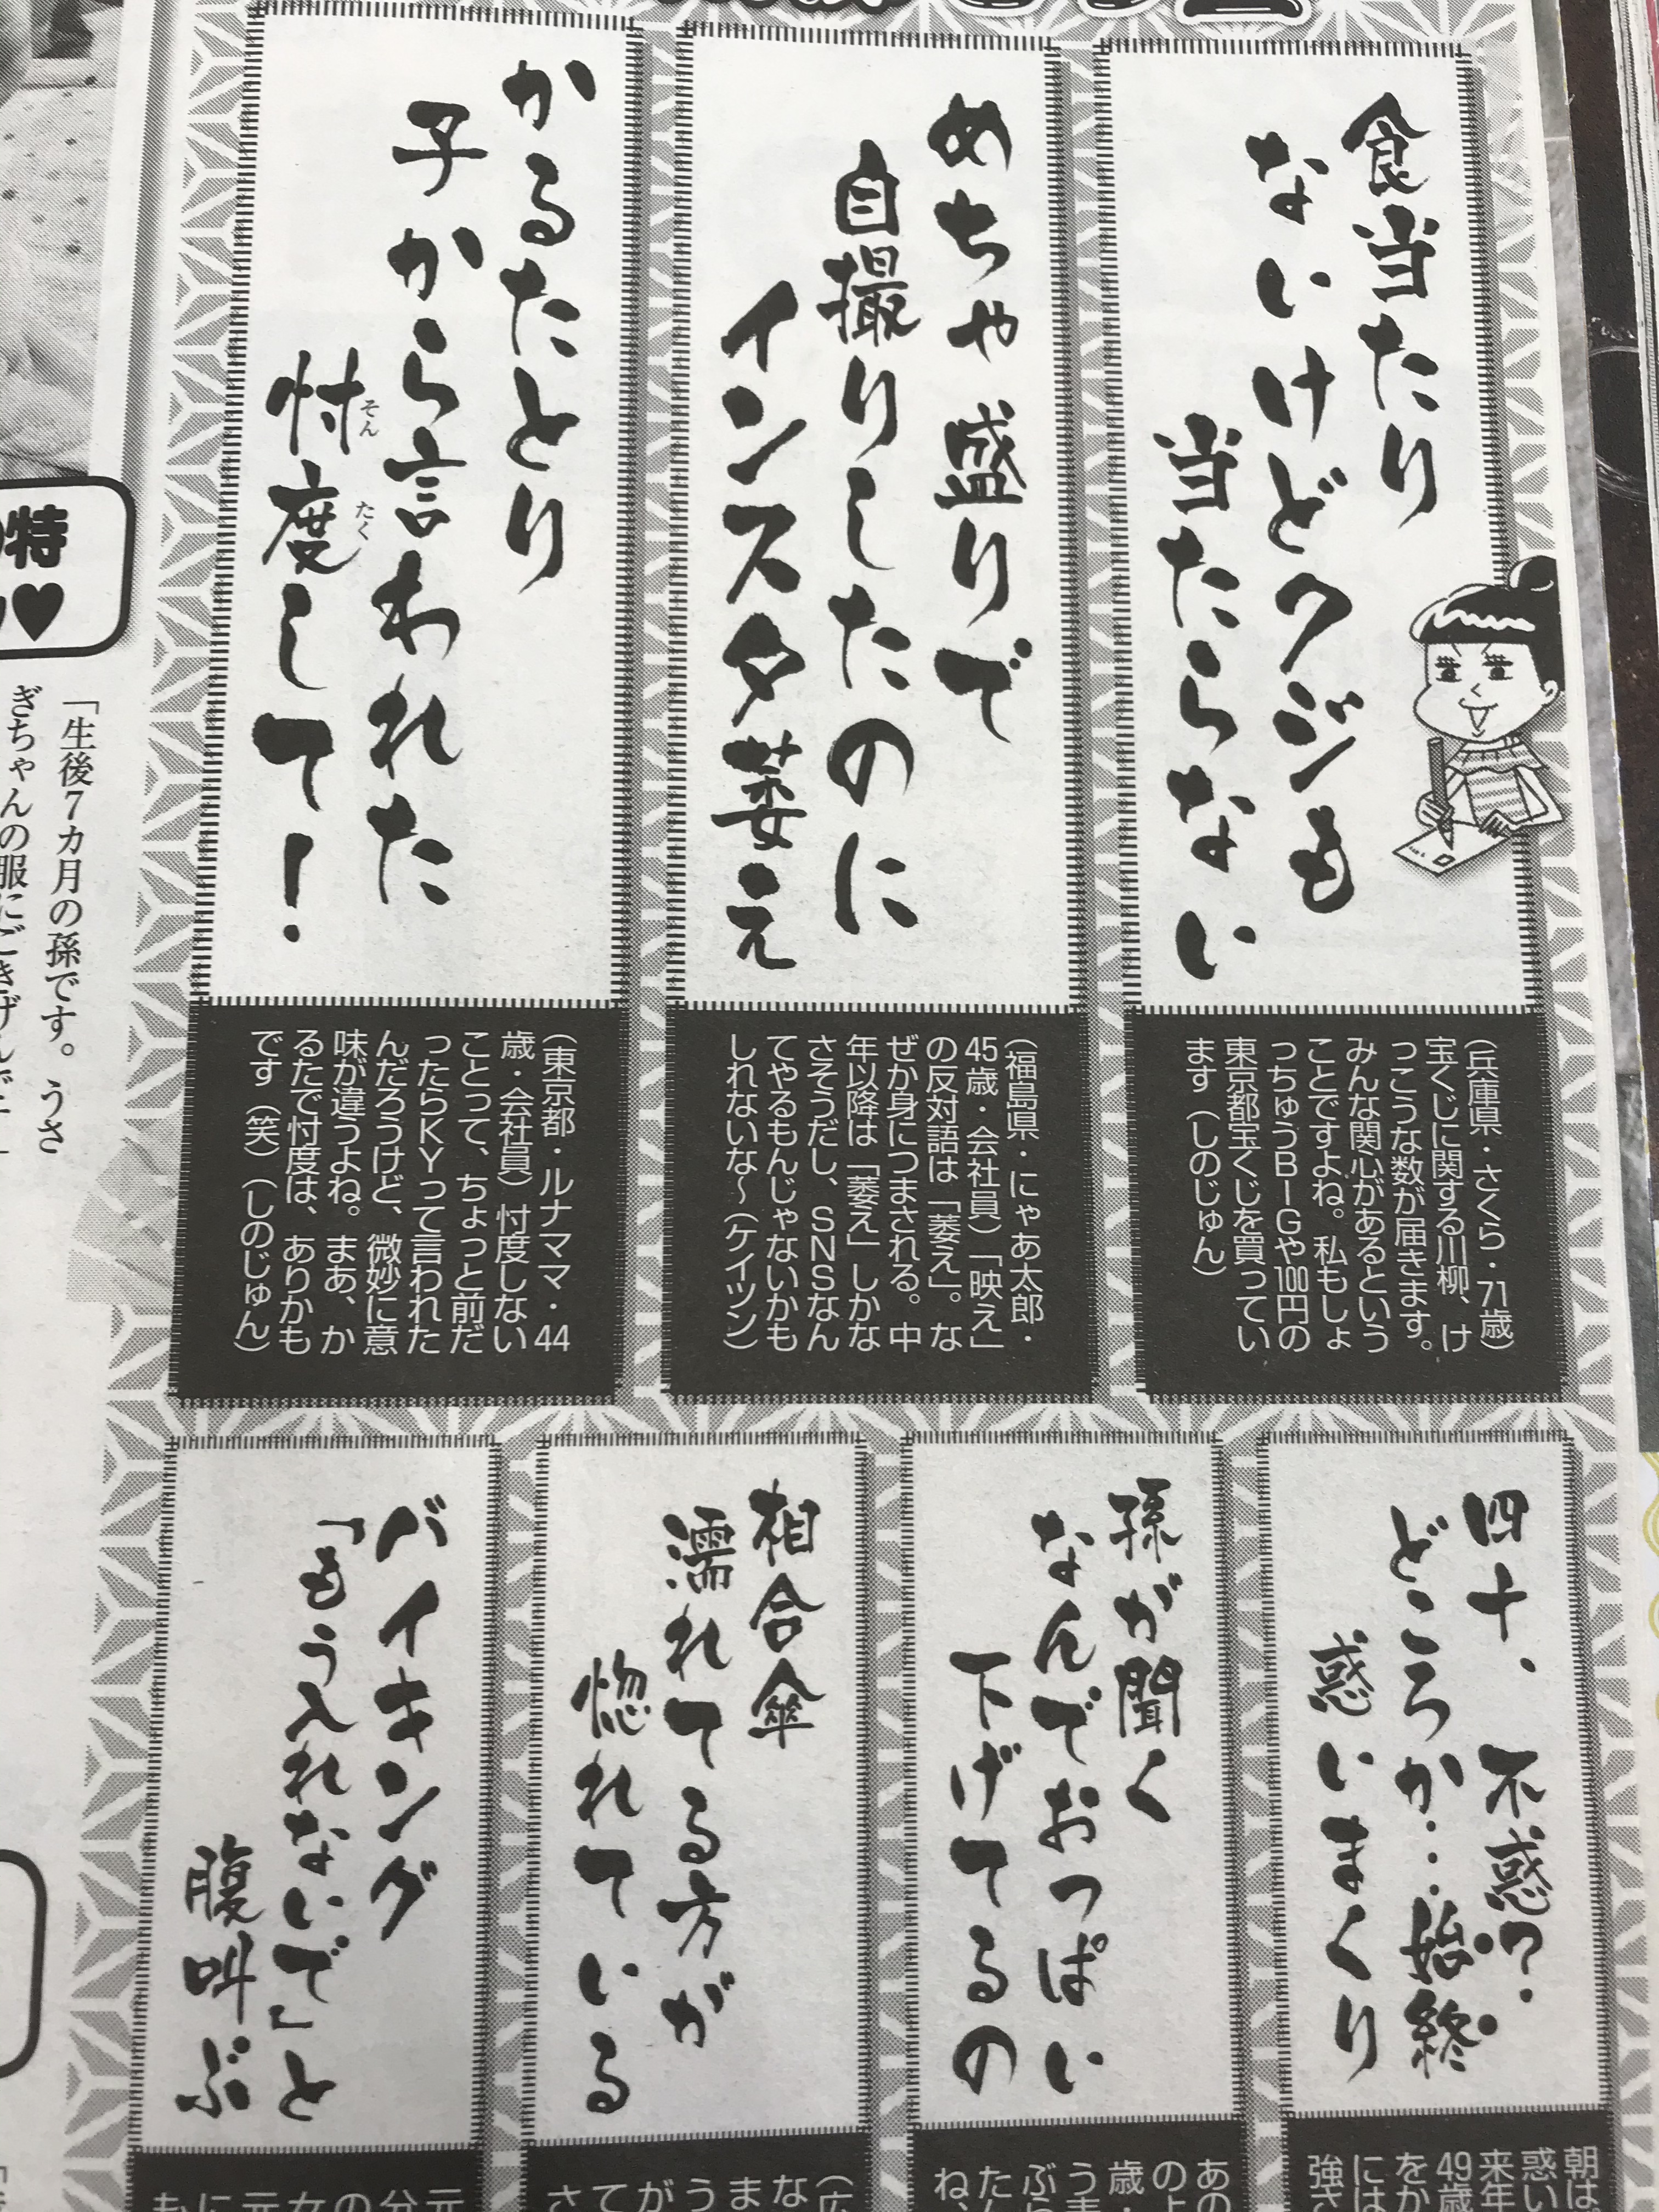 食当たり
ないけどクジも
当たらない
(兵庫県・さくら・71歳)
宝くじに関する川柳、け
っこうな数が届きます。
みんな関心があるという
ことですよね。私もしょ
っちゅうBIGや100円の
東京都宝くじを買ってい
ます(しのじゅん)
めちゃ盛りで
自撮りしたのに
インスタ萎え
(福島県・にゃあ太郎・
45歳・会社員)「映え」
の反対語は「萎え」。な
ぜか身につまされる。中
年以降は「萎え」しかな
さそうだし、SNSなん
てやるもんじゃないかも
しれないな〜(ケイツン)
かるたとり
子から言われた
忖度して!
そん
たく
(東京都・ルナママ・44
歳・会社員)忖度しない
ことって、ちょっと前だ
ったらKYって言われた
んだろうけど、微妙に意
味が違うよね。まあ、か
るたで忖度は、ありかも
です(笑)(しのじゅん)
四十、不惑?
どころか…始終
惑いまくり
孫が聞く
なんでおっぱい
下げてるの
相合傘
濡れてる方が
惚れている
バイキング
「もう入れないで」と
腹叫ぶ
朝は
惑い
来年
49歳
をか
には
強さ
特
「生後7カ月の孫です。うさ